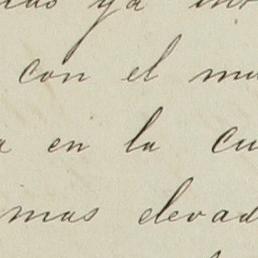 ya
con el mu
en la cu
mas elevad